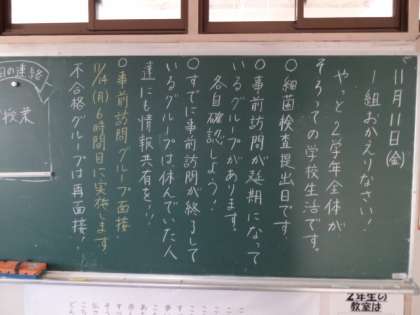 11月11日(金)
1組おかえりなさい!
やっと2学年全体が
そろっての学校生活です。
○細菌検査提出日です
○事前訪問が延期になって
いるグループがあります。
各自確認しよう!
○すでに事前訪問が終了して
いるグループは休んでいた人
達にも情報共有を!!
○事前訪問グループ面接!
11/14(月)6時間目に実施します
不合格グループは再面接!
2年生の
教室は